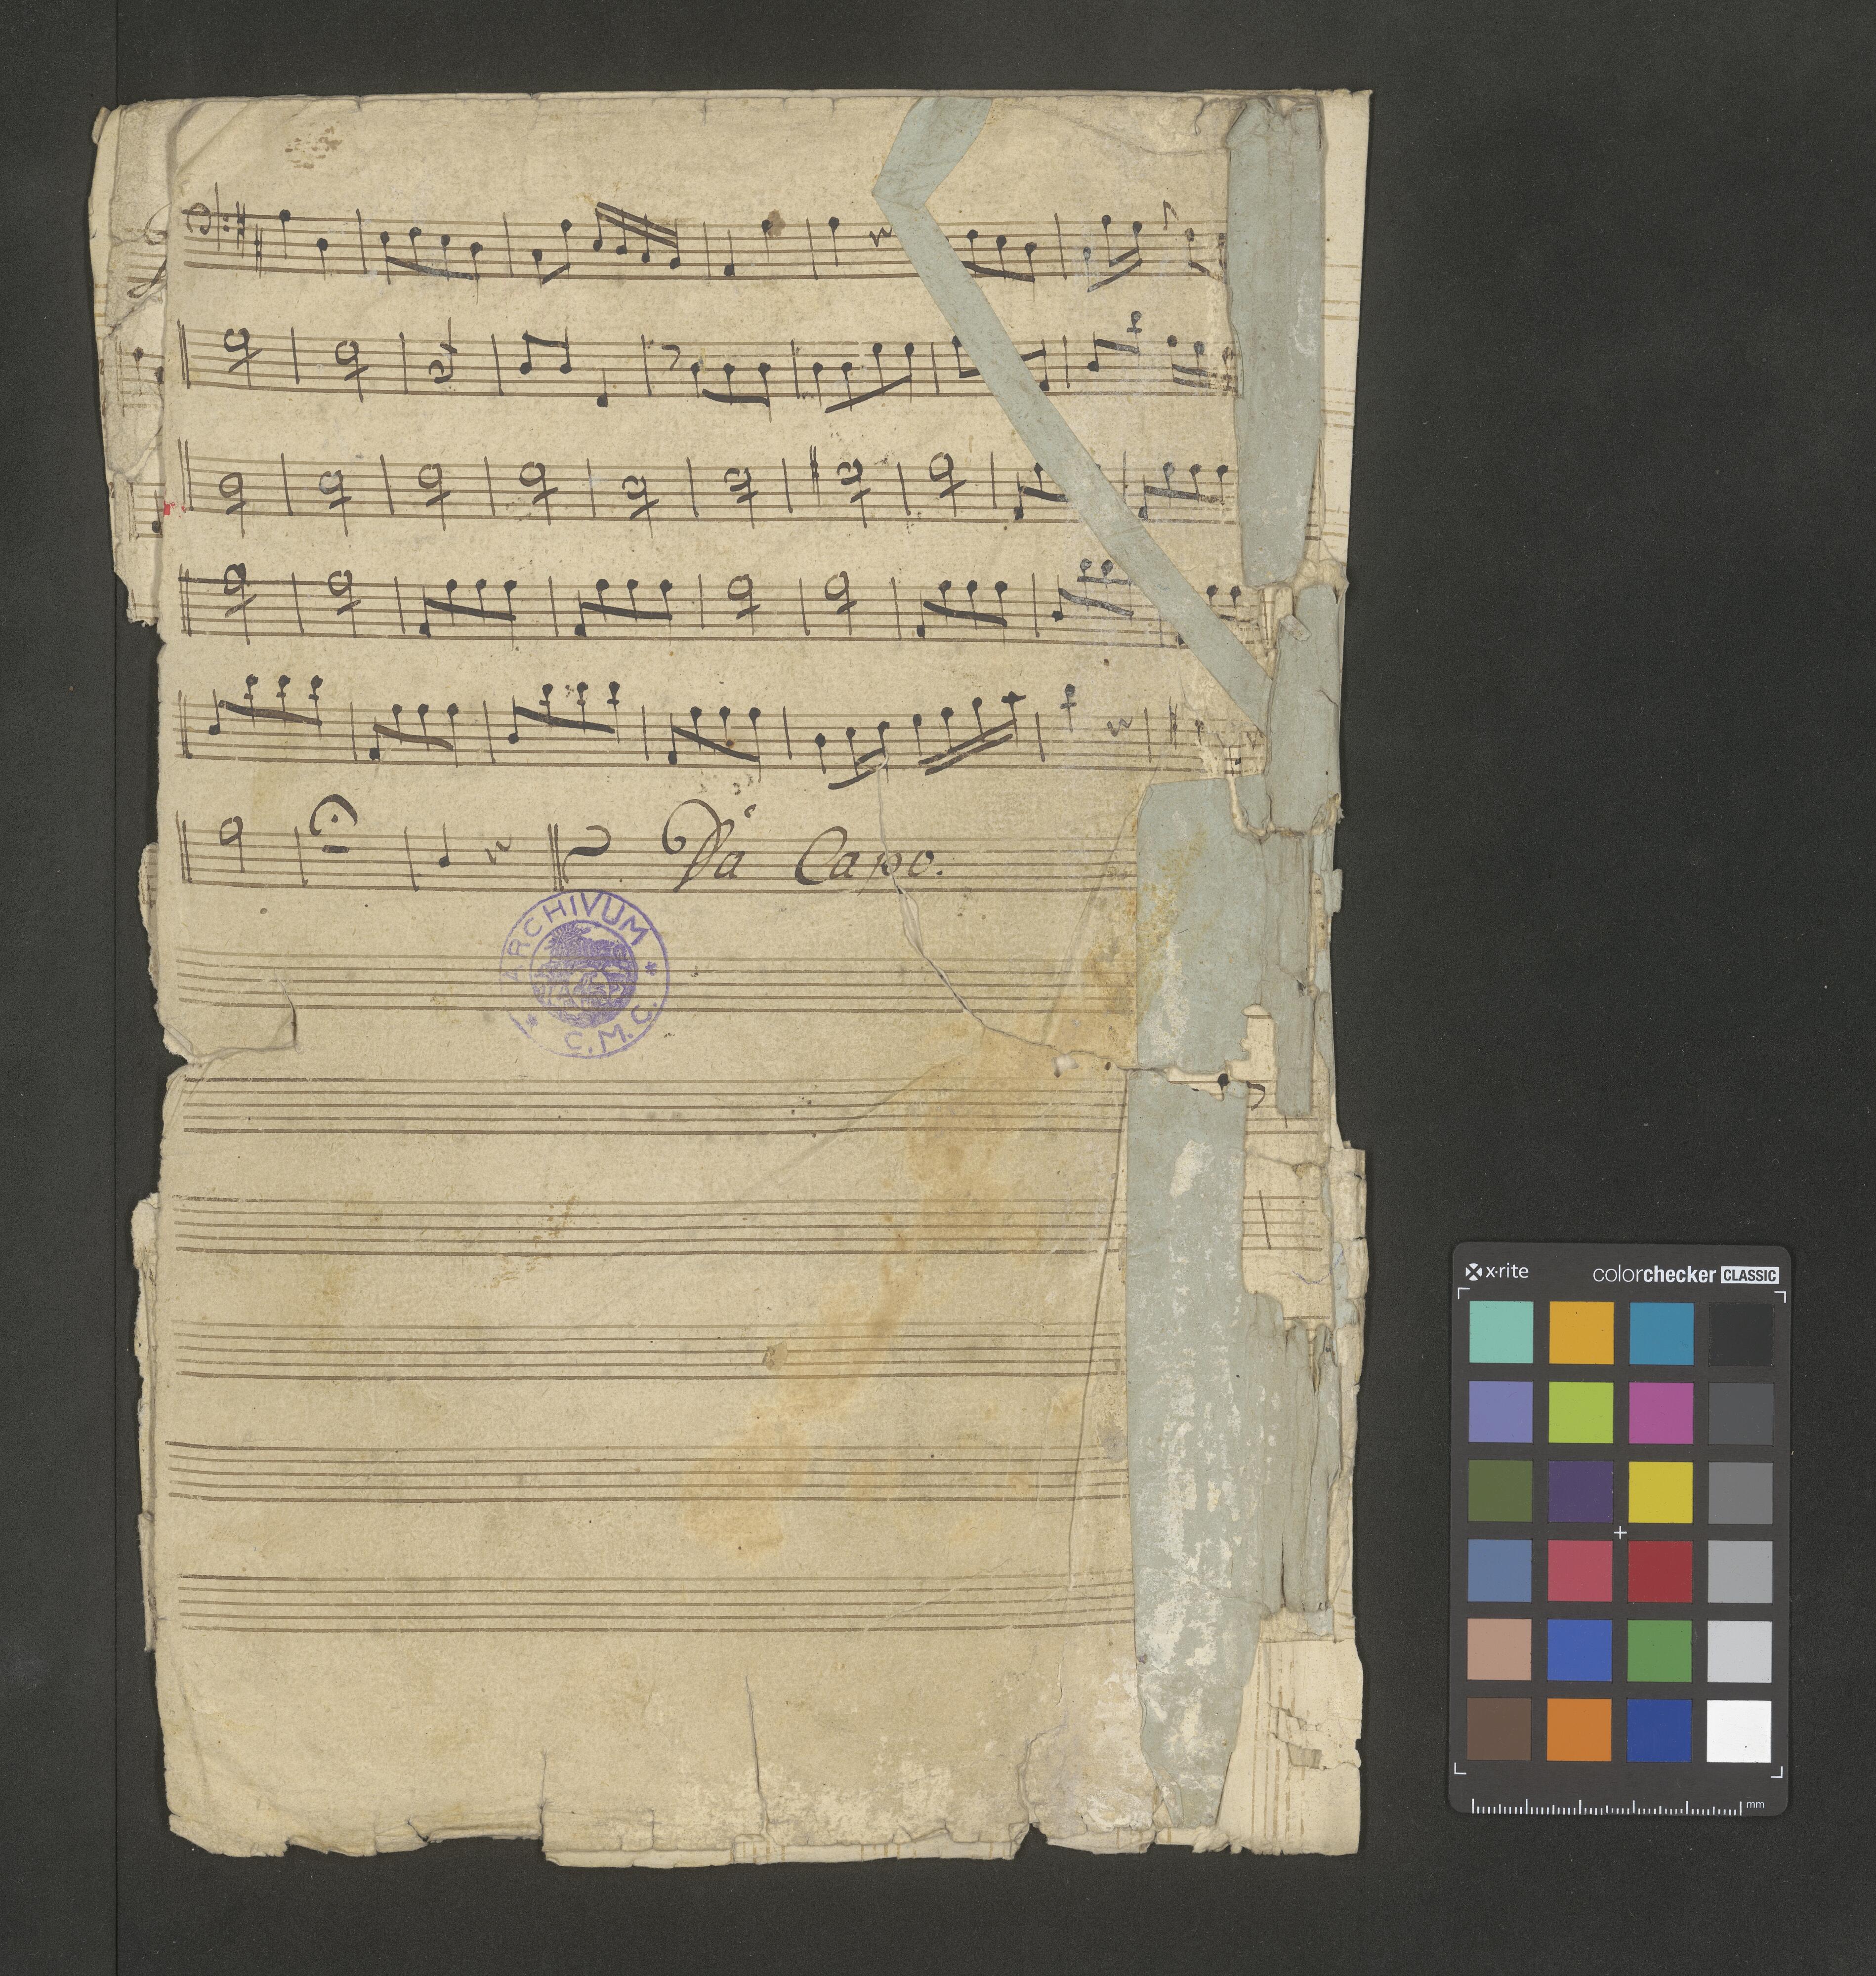 Da Capo.
ARCHIVUM
* C.M.C. *
x·rite colorchecker CLASSIC
mm